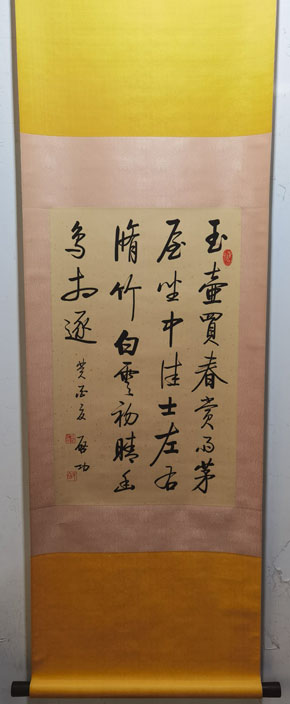 玉壶買春賞雨茅
屋坐中佳士左右
脩竹白雲初晴幽
鳥相逐
啟功